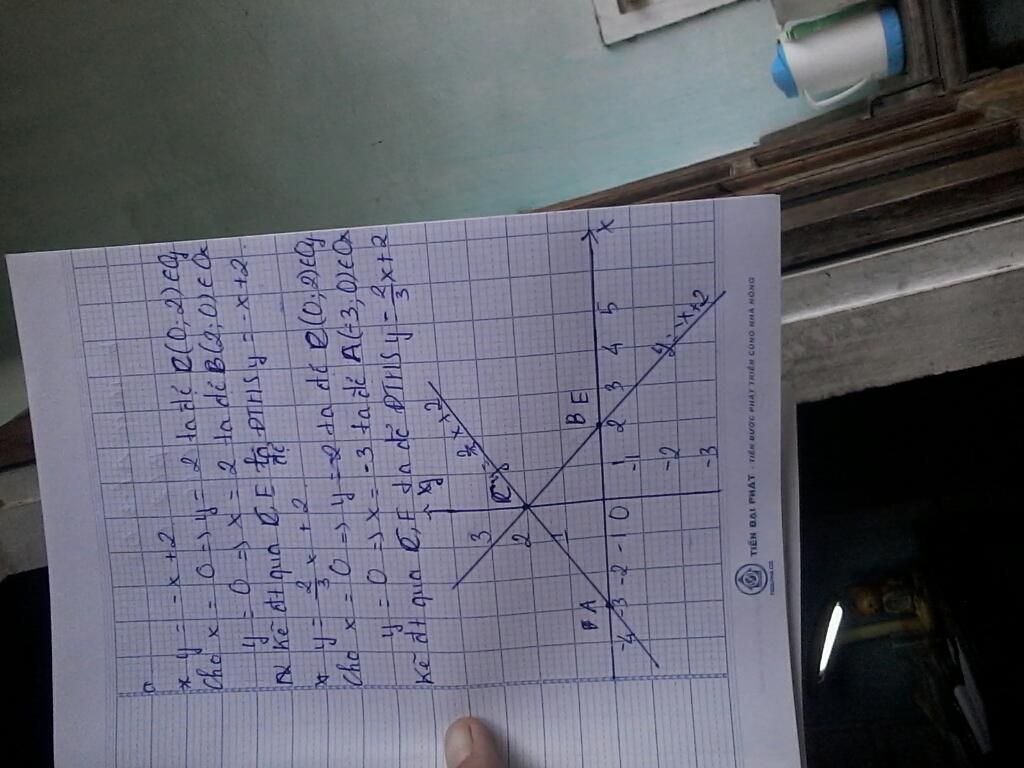 a
* y = -x + 2
Cho x = 0 => y = 2 ta đc C(0; 2) ∈ Oy
y = 0 => x = 2 ta đc B(2; 0) ∈ Ox
Kẻ đt qua C, E ta đc ĐTHS y = -x + 2.
* y = 2/3 x + 2
Cho x = 0 => y = 2 ta đc C(0; 2) ∈ Oy
y = 0 => x = -3 ta đc A(-3; 0) ∈ Ox
Kẻ đt qua C, F ta đc ĐTHS y = 2/3 x + 2
y
3
2
1
C
A
B E
x
-4 -3 -2 -1 0 1 2 3 4 5
-1
-2
-3
TIẾN ĐẠI PHÁT - TIẾN BƯỚC PHÁT TRIỂN CÙNG NHÀ NÔNG